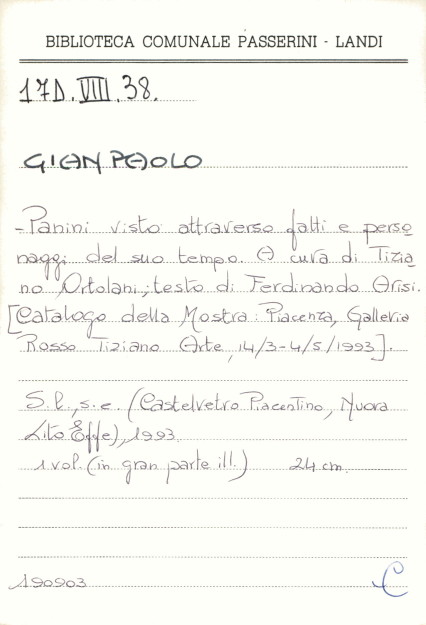 BIBLIOTECA COMUNALE PASSERINI - LANDI
17D.VIII.38.
GIAN PAOLO
-Panini visto attraverso fatti e perso
naggi del suo tempo. A cura di Tizia
no Ortolani; testo di Ferdinando Arisi.
[Catalogo della Mostra: Piacenza, Galleria
Rosso Tiziano Arte, 14/3-4/5/1993].
S.l., s.e. (Castelvetro Piacentino, Nuova
Lito Effe), 1993.
1 vol. (in gran parte ill.) 24 cm.
190903 C